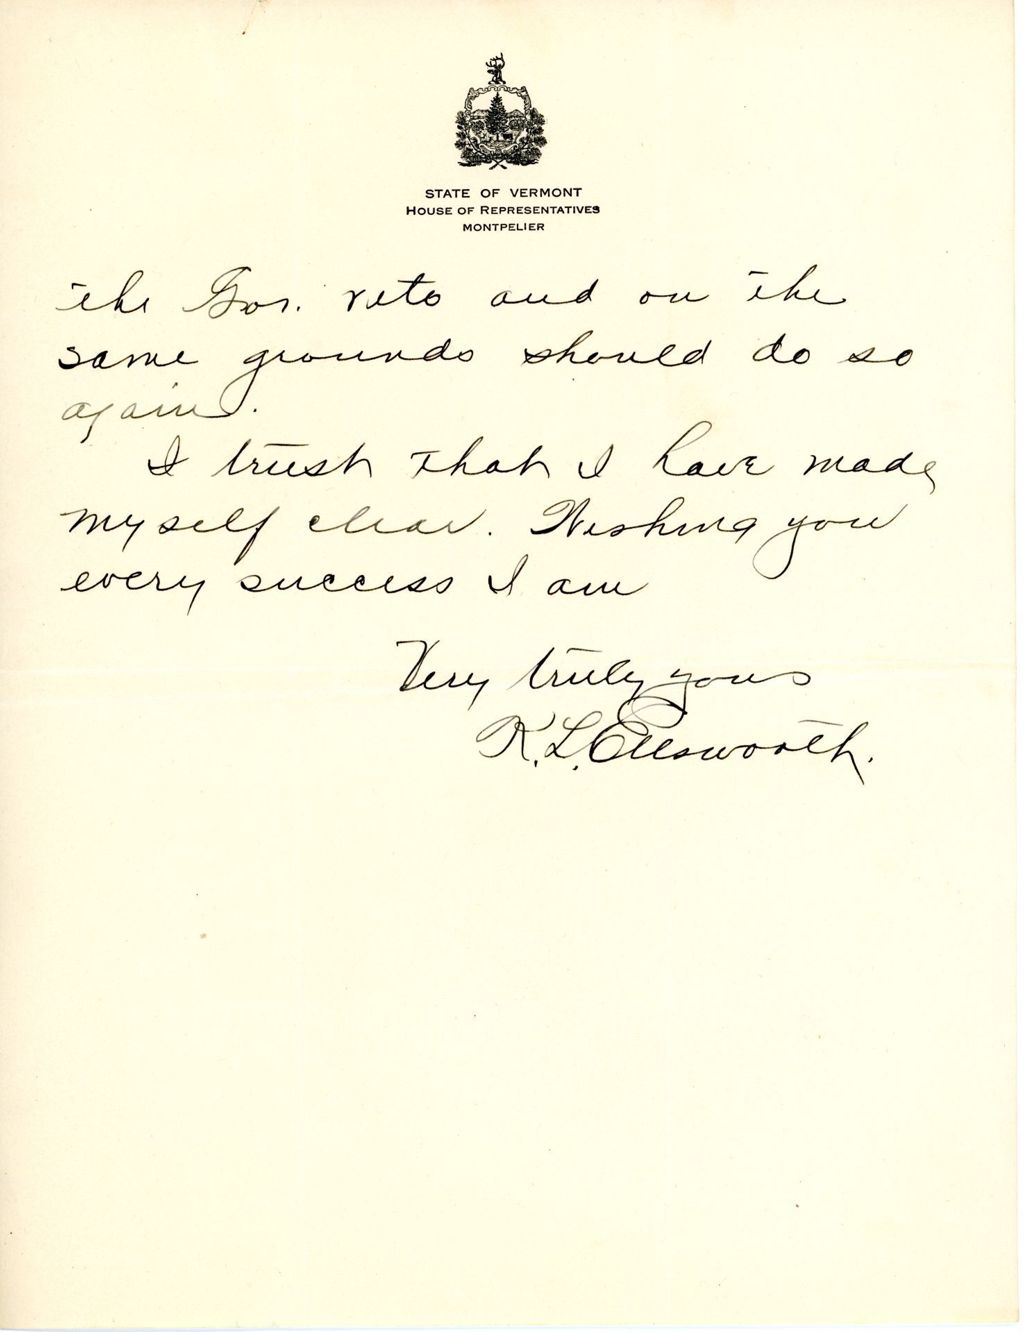 STATE OF VERMONT
HOUSE OF REPRESENTATIVES
MONTPELIER
the Gov. veto and on the
same grounds should do so
again.
I trust that I have made
myself clear. Wishing you
every success I am
Very truly yours
K. L. Ellsworth.